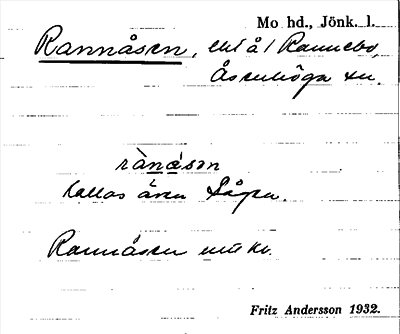 Mo hd., Jönk. l.
Rannåsen, å i Rannebo,
Åsenhöga sn.
rànásən
kallas även Lågan.
Rannåsen
Fritz Andersson 1932.